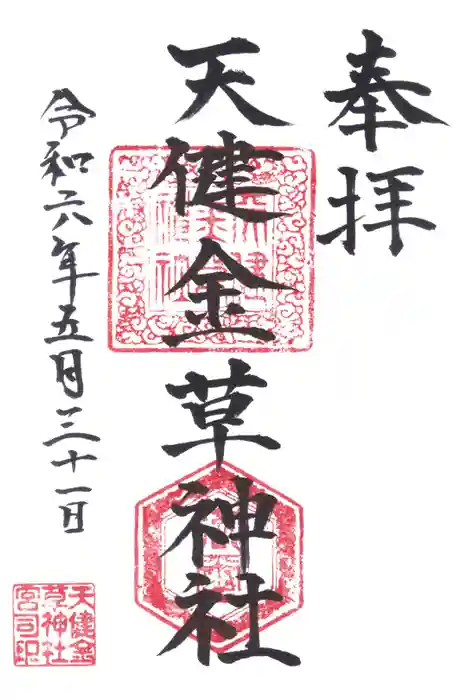 奉拝
天健金草神社
令和六年五月三十一日
天健金
草神社
宮司印